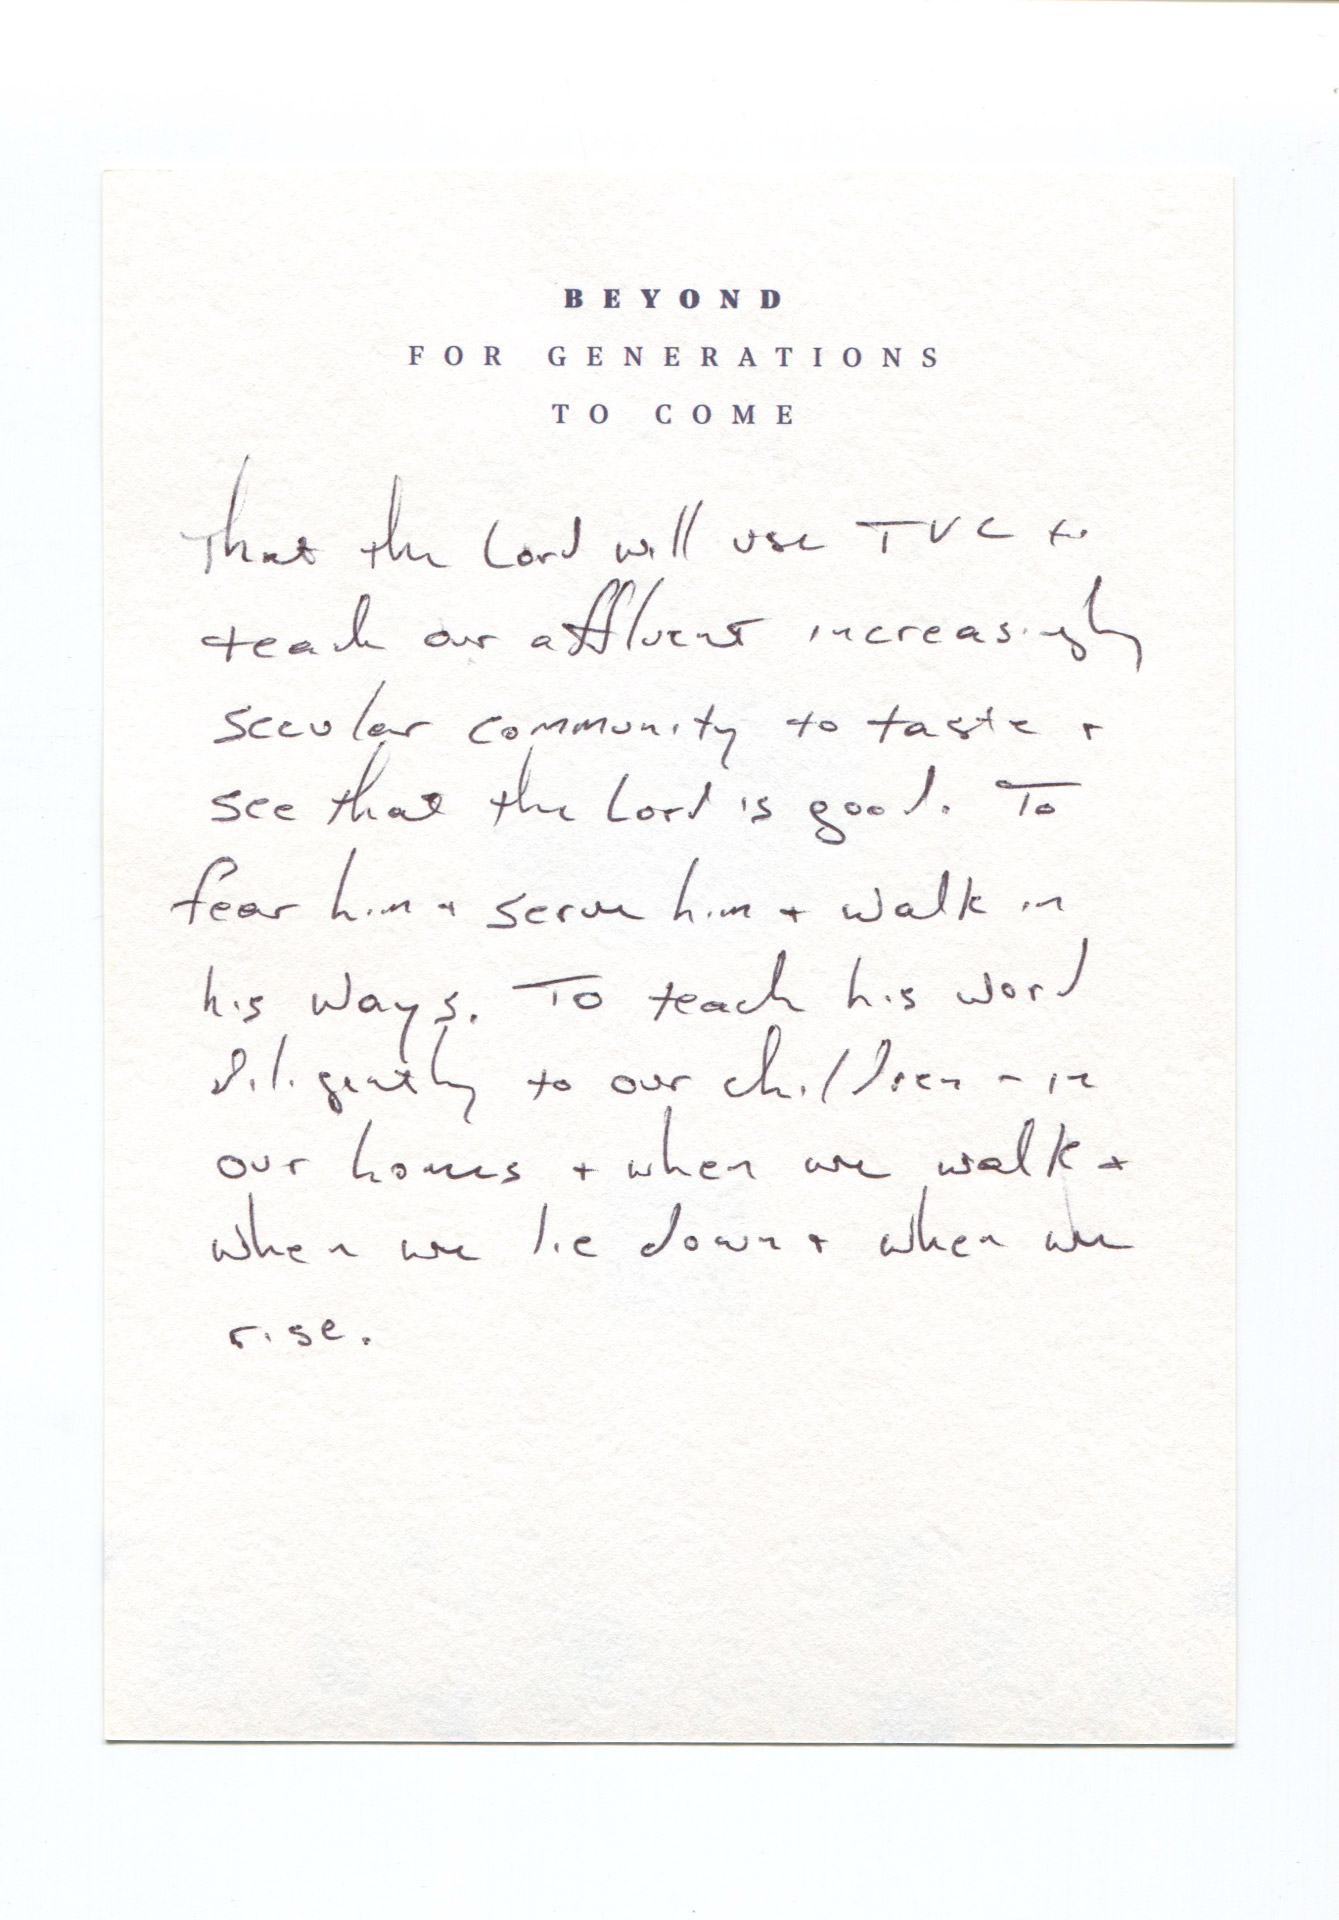 BEYOND
FOR GENERATIONS
TO COME
That the Lord will use TVC to
teach our affluent increasingly
secular community to taste +
see that the Lord is good. To
fear him + serve him + walk in
his ways. To teach his word
diligently to our children - in
our homes + when we walk +
when we lie down + when we
rise.